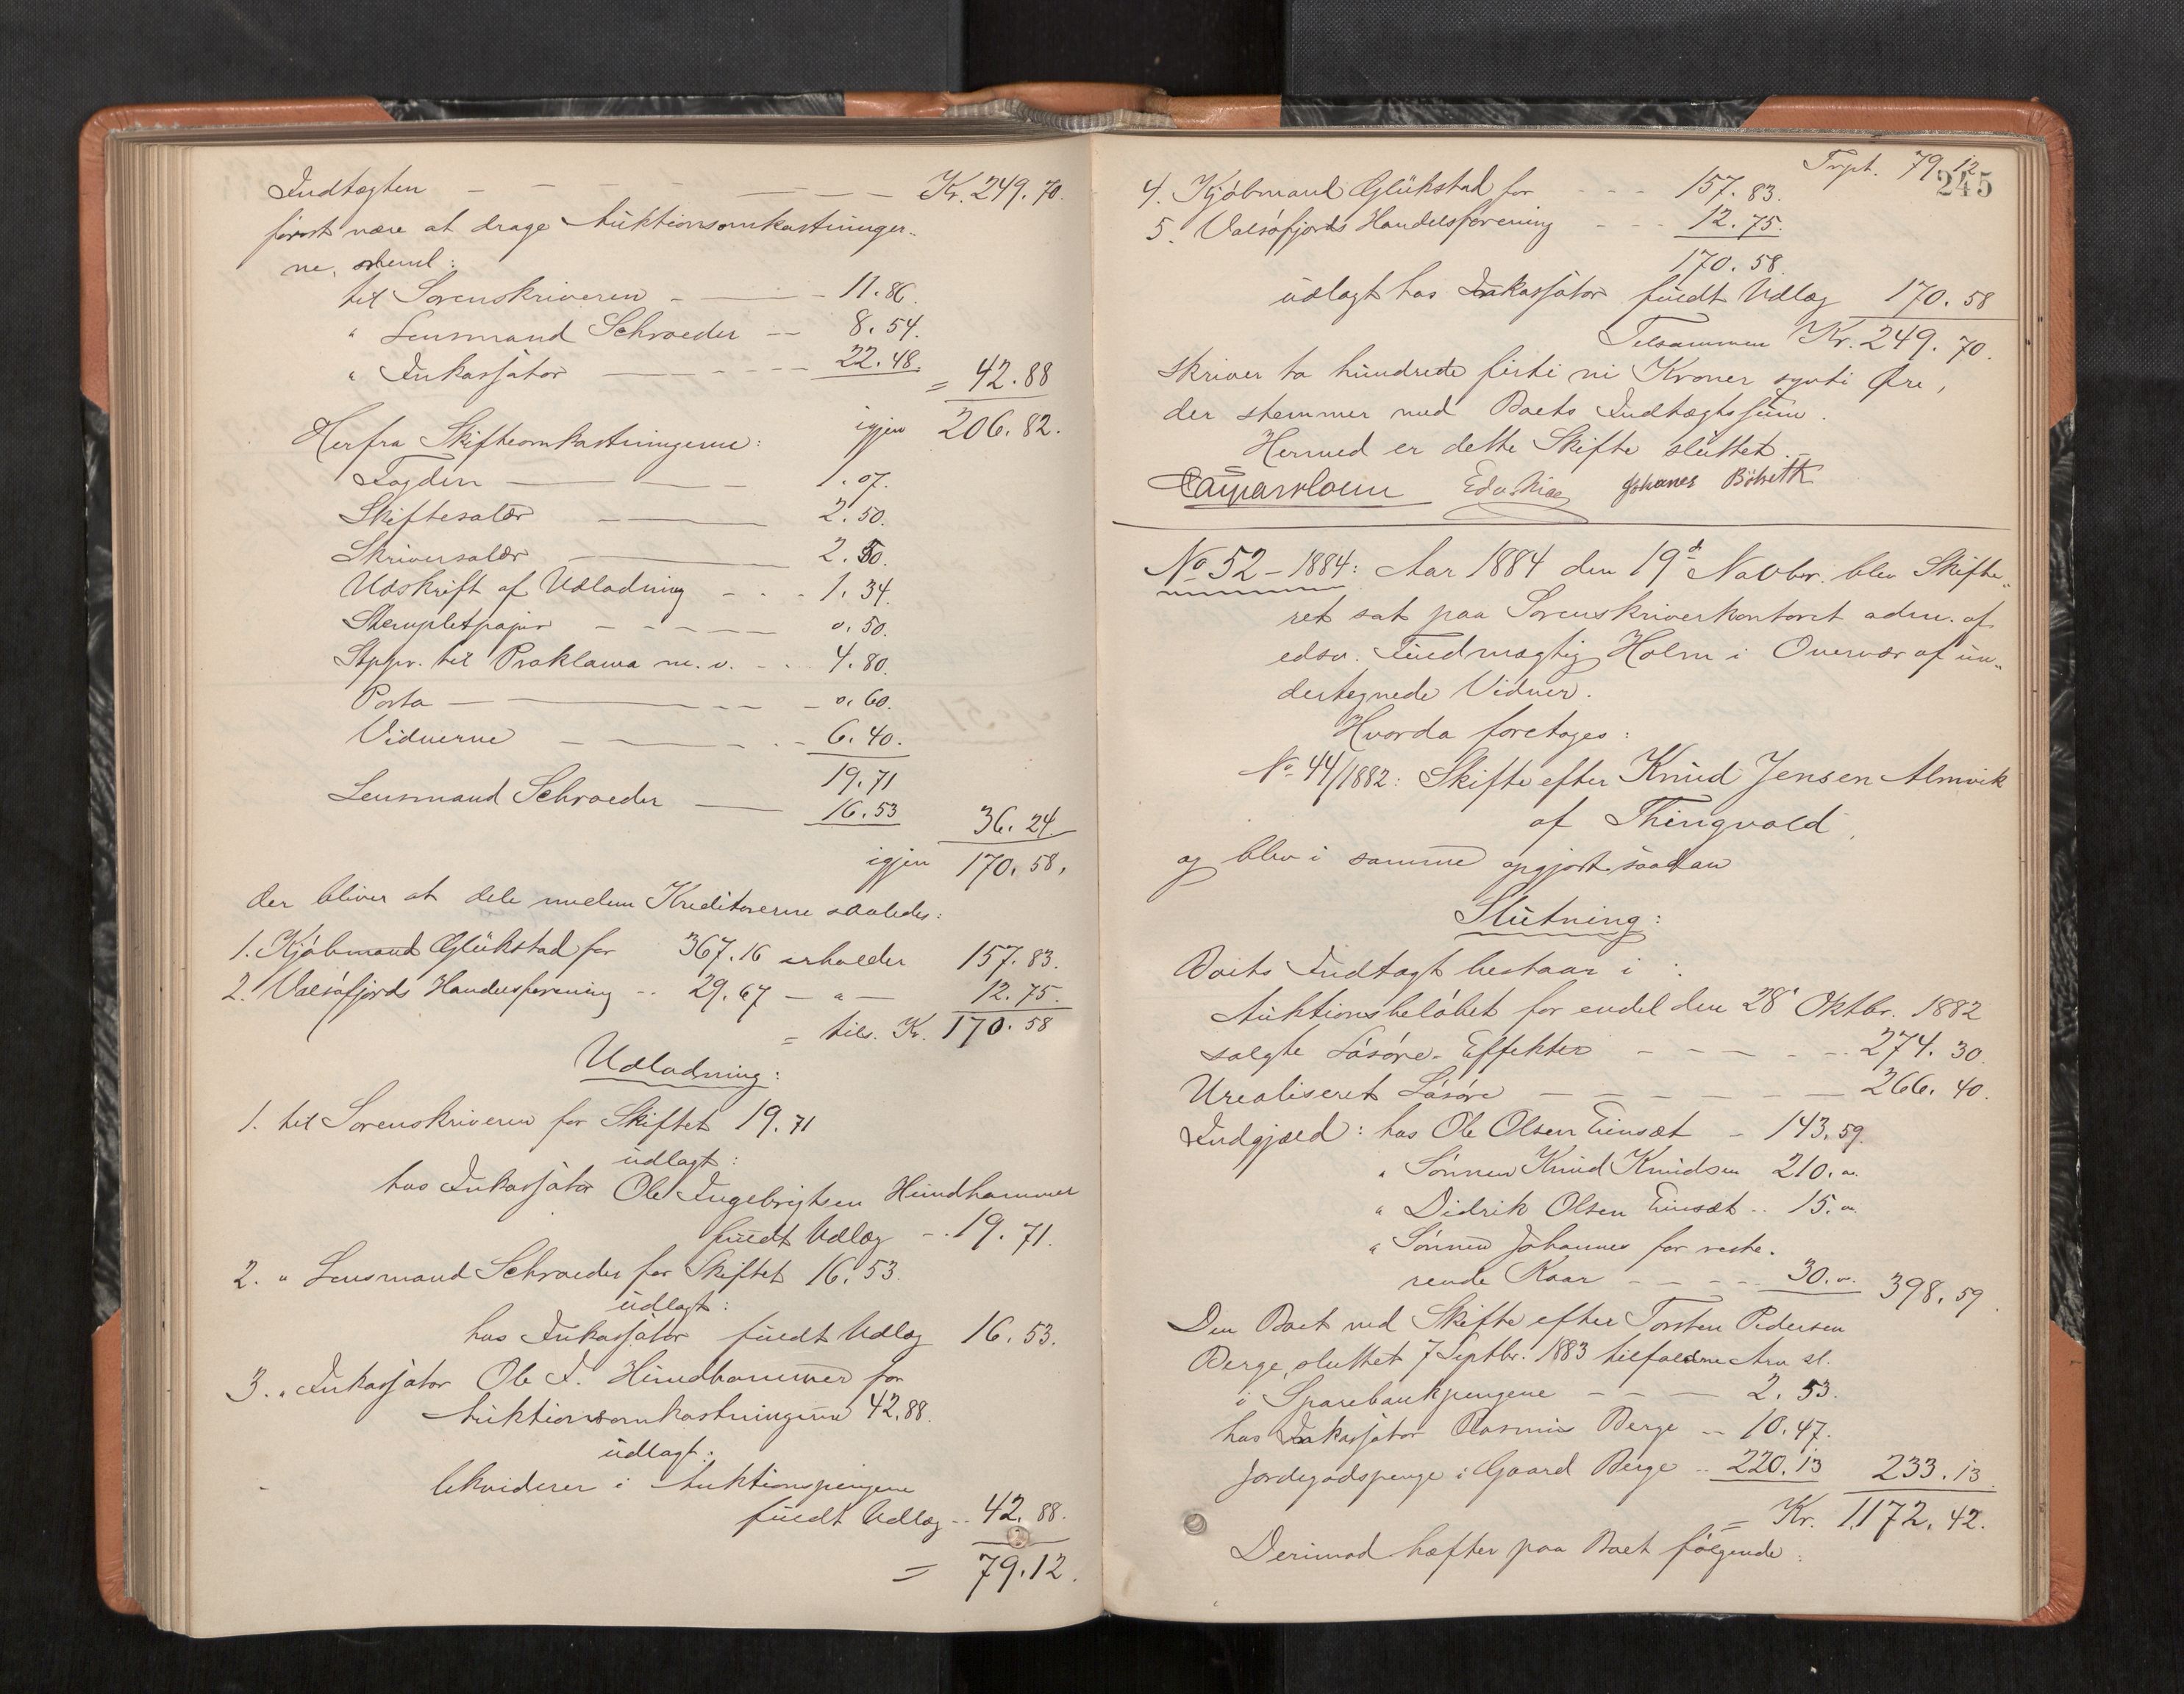 Indtægten — — — — Kr. 249. 70.
først være at drage Auktionsomkostninger-
ne, nemlig:
til Sorenskriveren — 11. 86.
" Lensmand Schroeder — 8. 54.
" Inkassator — 22. 48. = 42. 88
igjen 206. 82.
Herfra Skifteomkostningerne:
Fogden — 1. 07.
Skiftesalær — 2. 50.
Skriversalær — 2. 50.
Udskrift af Udlodning — 1. 34.
Stempletpapir — 0. 50.
Stppr. til Proklama m. v. — 4. 80.
Porto — 0. 60.
Vidnerne — 6. 40.
19. 71
Lensmand Schroeder — 16. 53 36. 24
igjen 170. 58.
der bliver at dele mellem Kreditorerne saaledes:
1. Kjøbmand Glükstad for 367. 16 erholder 157. 83.
2. Valsøfjords Handelsforening -- 29. 67 — " — 12. 75.
= tils. Kr. 170. 58
Udlodning:
1. til Sorenskriveren for Skiftet 19. 71
udlagt:
hos Inkassator Ole Ingebrigtsen Hundhammer
fuldt Udlæg -- 19. 71.
2. " Lensmand Schroeder for Skiftet 16. 53.
udlagt:
hos Inkassator fuldt Udlæg 16. 53.
3. " Inkassator Ole I. Hundhammer for
Auktionsomkostningerne 42. 88.
udlagt:
likviderer i Auktionspengene
fuldt Udlæg -- 42. 88.
= 79. 12.
Trpt. 79. 12
245
4. Kjøbmand Glükstad for - - - 157. 83.
5. Valsøfjords Handelsforening - - - 12. 75.
170. 58.
udlagt hos Inkassator fuldt Udlæg 170. 58
Tilsammen Kr. 249. 70.
skriver to hundrede firti ni Kroner sytti Øre,
der stemmer med Boets Indtægtssum.
Hermed er dette Skifte sluttet.
Casparholm Johanes
No 52 - 1884: Aar 1884 den 19d Novbr. blev Skifte-
ret sat paa Sorenskriverkontoret adm. af
edsv. Fuldmægtig Holm i Overvær af un-
dertegnede Vidner.
Hvorda foretoges:
No 44/1882: Skifte efter Knud Jensen Almvik
af Thingvold,
og blev i samme opgjort saadan
Slutning:
Boets Indtægt bestaar i:
Auktionsbeløbet for endel den 28' Oktbr. 1882
solgte Løsøre-Effekter — — — 274. 30.
Urealiseret Løsøre — — — 266. 40.
Indgjæld: hos Ole Olsen Einsæt - 143. 59.
" Sønnen Knud Knudsen 210. "
" Didrik Olsen Einsæt -- 15. "
" Sønnen Johannes for reste-
rende Kaar — — — 30. " 398. 59.
Den Boet ved Skifte efter Torsten Pedersen
Berge, sluttet 7 Septbr. 1883 tilfaldne Arv sl.
i Sparebankpengene — — — 2. 53.
hos Inkassator Rasmus Berge -- 10. 47.
Jordegodspenge i Gaard Berge -- 220. 13 233. 13.
= Kr. 1,172. 42.
Derimod hæfter paa Boet følgende: